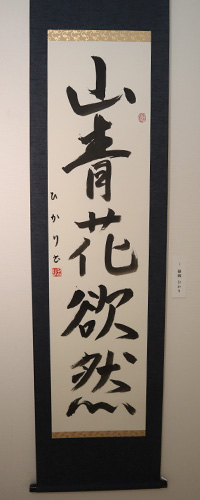 山青花欲然
ひかり書